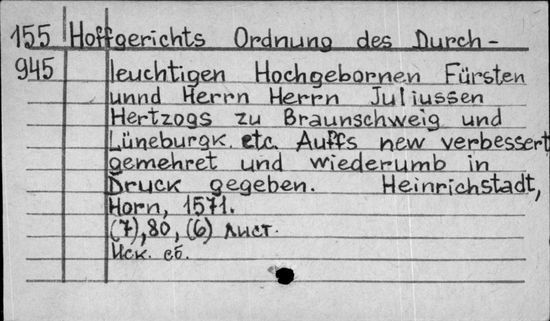 155 Hoffgerichts Ordnung des Durch-
945 leuchtigen Hochgebornen Fürsten
unnd Herrn Herrn Juliussen
Hertzogs zu Braunschweig und
Lüneburgk. etc. Auffs new verbessert
gemehret und wiederumb in
Druck gegeben. Heinrichstadt,
Horn, 1571.
(7), 80, (6) лист.
Иск. сб.